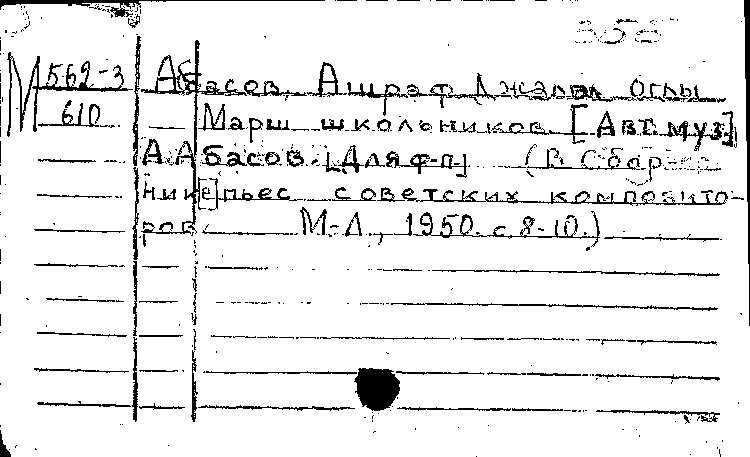 М 562-3 Абасов, Ашраф Джалал Оглы
610 Марш школьников. [Авт. муз]
А. Абасов. [Для ф-п.] (В Сбор-
нике пьес советских композито-
ров. М.-Л., 1950. с. 8-10.)